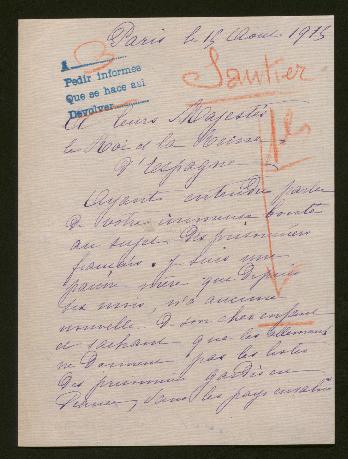 Paris le 15 Aout 1915
A
Pedir informes
Que se hace asi
Devolver
Sautier
A leurs Majestés
le Roi et la Reine
d'Espagne
Ayant entendu parler
de votre immense bonté
au sujet des prisonniers
français. Je suis une
pauvre mère que depuis
six mois, n'a aucune
nouvelle d son cher enfant
et sachant que les Allemands
ne donnent pas les listes
des prisonniers gardés en
France, dans les pays envahis